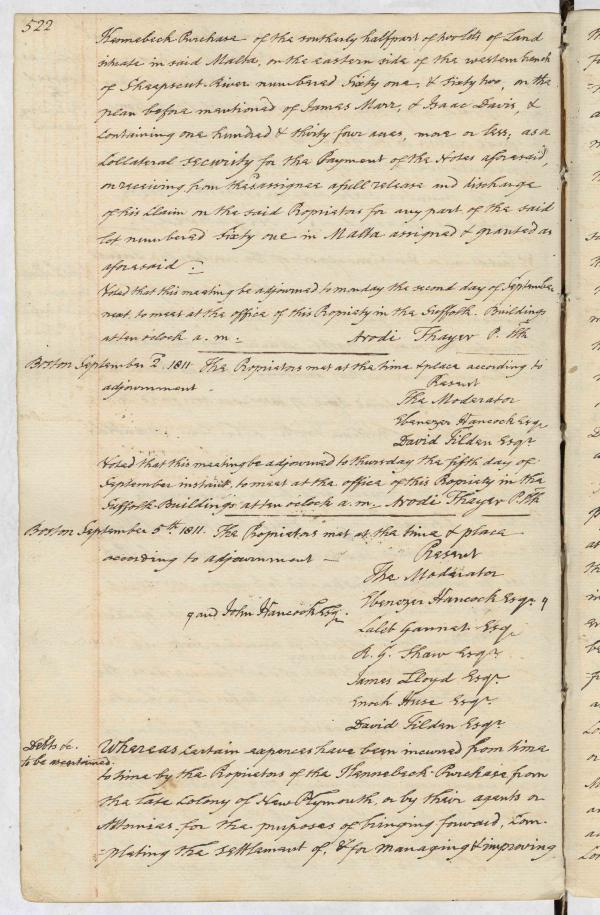 522
Kennebeck Purchase of the southerly half part of two lots of Land
situate in said Malta, on the eastern side of the western branch
of Sheepscut River numbered Sixty one, & Sixty two, on the
plan before mentioned of James Marr, & Isaac Davis, &
Containing one hundred & thirty four acres, more or less, as a
Collateral security for the Payment of the Notes aforesaid,
on receiving from the assignee a full release and discharge
of his Claim on the said Propriators for any part of the said
lot numbered Sixty one in Malta assigned & granted as
aforesaid :
Voted that this meeting be adjourned to monday the second day of September
next to meet at the office of this Propriety in the Suffolk Buildings
at ten oclock a. m.
Arodi Thayer P. Clk
Boston September 2. 1811 The Propriators met at the time & place according to
adjournment
Present
The Moderator
Ebenezer Hancock Esqr
David Tilden Esqr
Voted that this meeting be adjourned to thursday the fifth day of
September instant, to meet at the office of this Propriety in the
Suffolk Buildings at ten oclock a. m. Arodi Thayer P. Clk
Boston September 5th. 1811. The Propriators met at the time & place
according to adjournment —
Present
The Moderator
Ebenezer Hancock Esqr
and John Hancock Esqr.
Caleb Gannet Esqr
R. G. Shaw Esqr.
James Lloyd Esqr
Enoch Huse Esqr.
David Tilden Esqr
Debts &c.
to be ascertained.
Whereas Certain expences have been incurred from time
to time by the Propriators of the Kennebeck Purchase from
the late Colony of New Plymouth, or by their agents or
Attornies for the purposes of bringing forward, Com-
-plating the settlement of, & for managing & improving